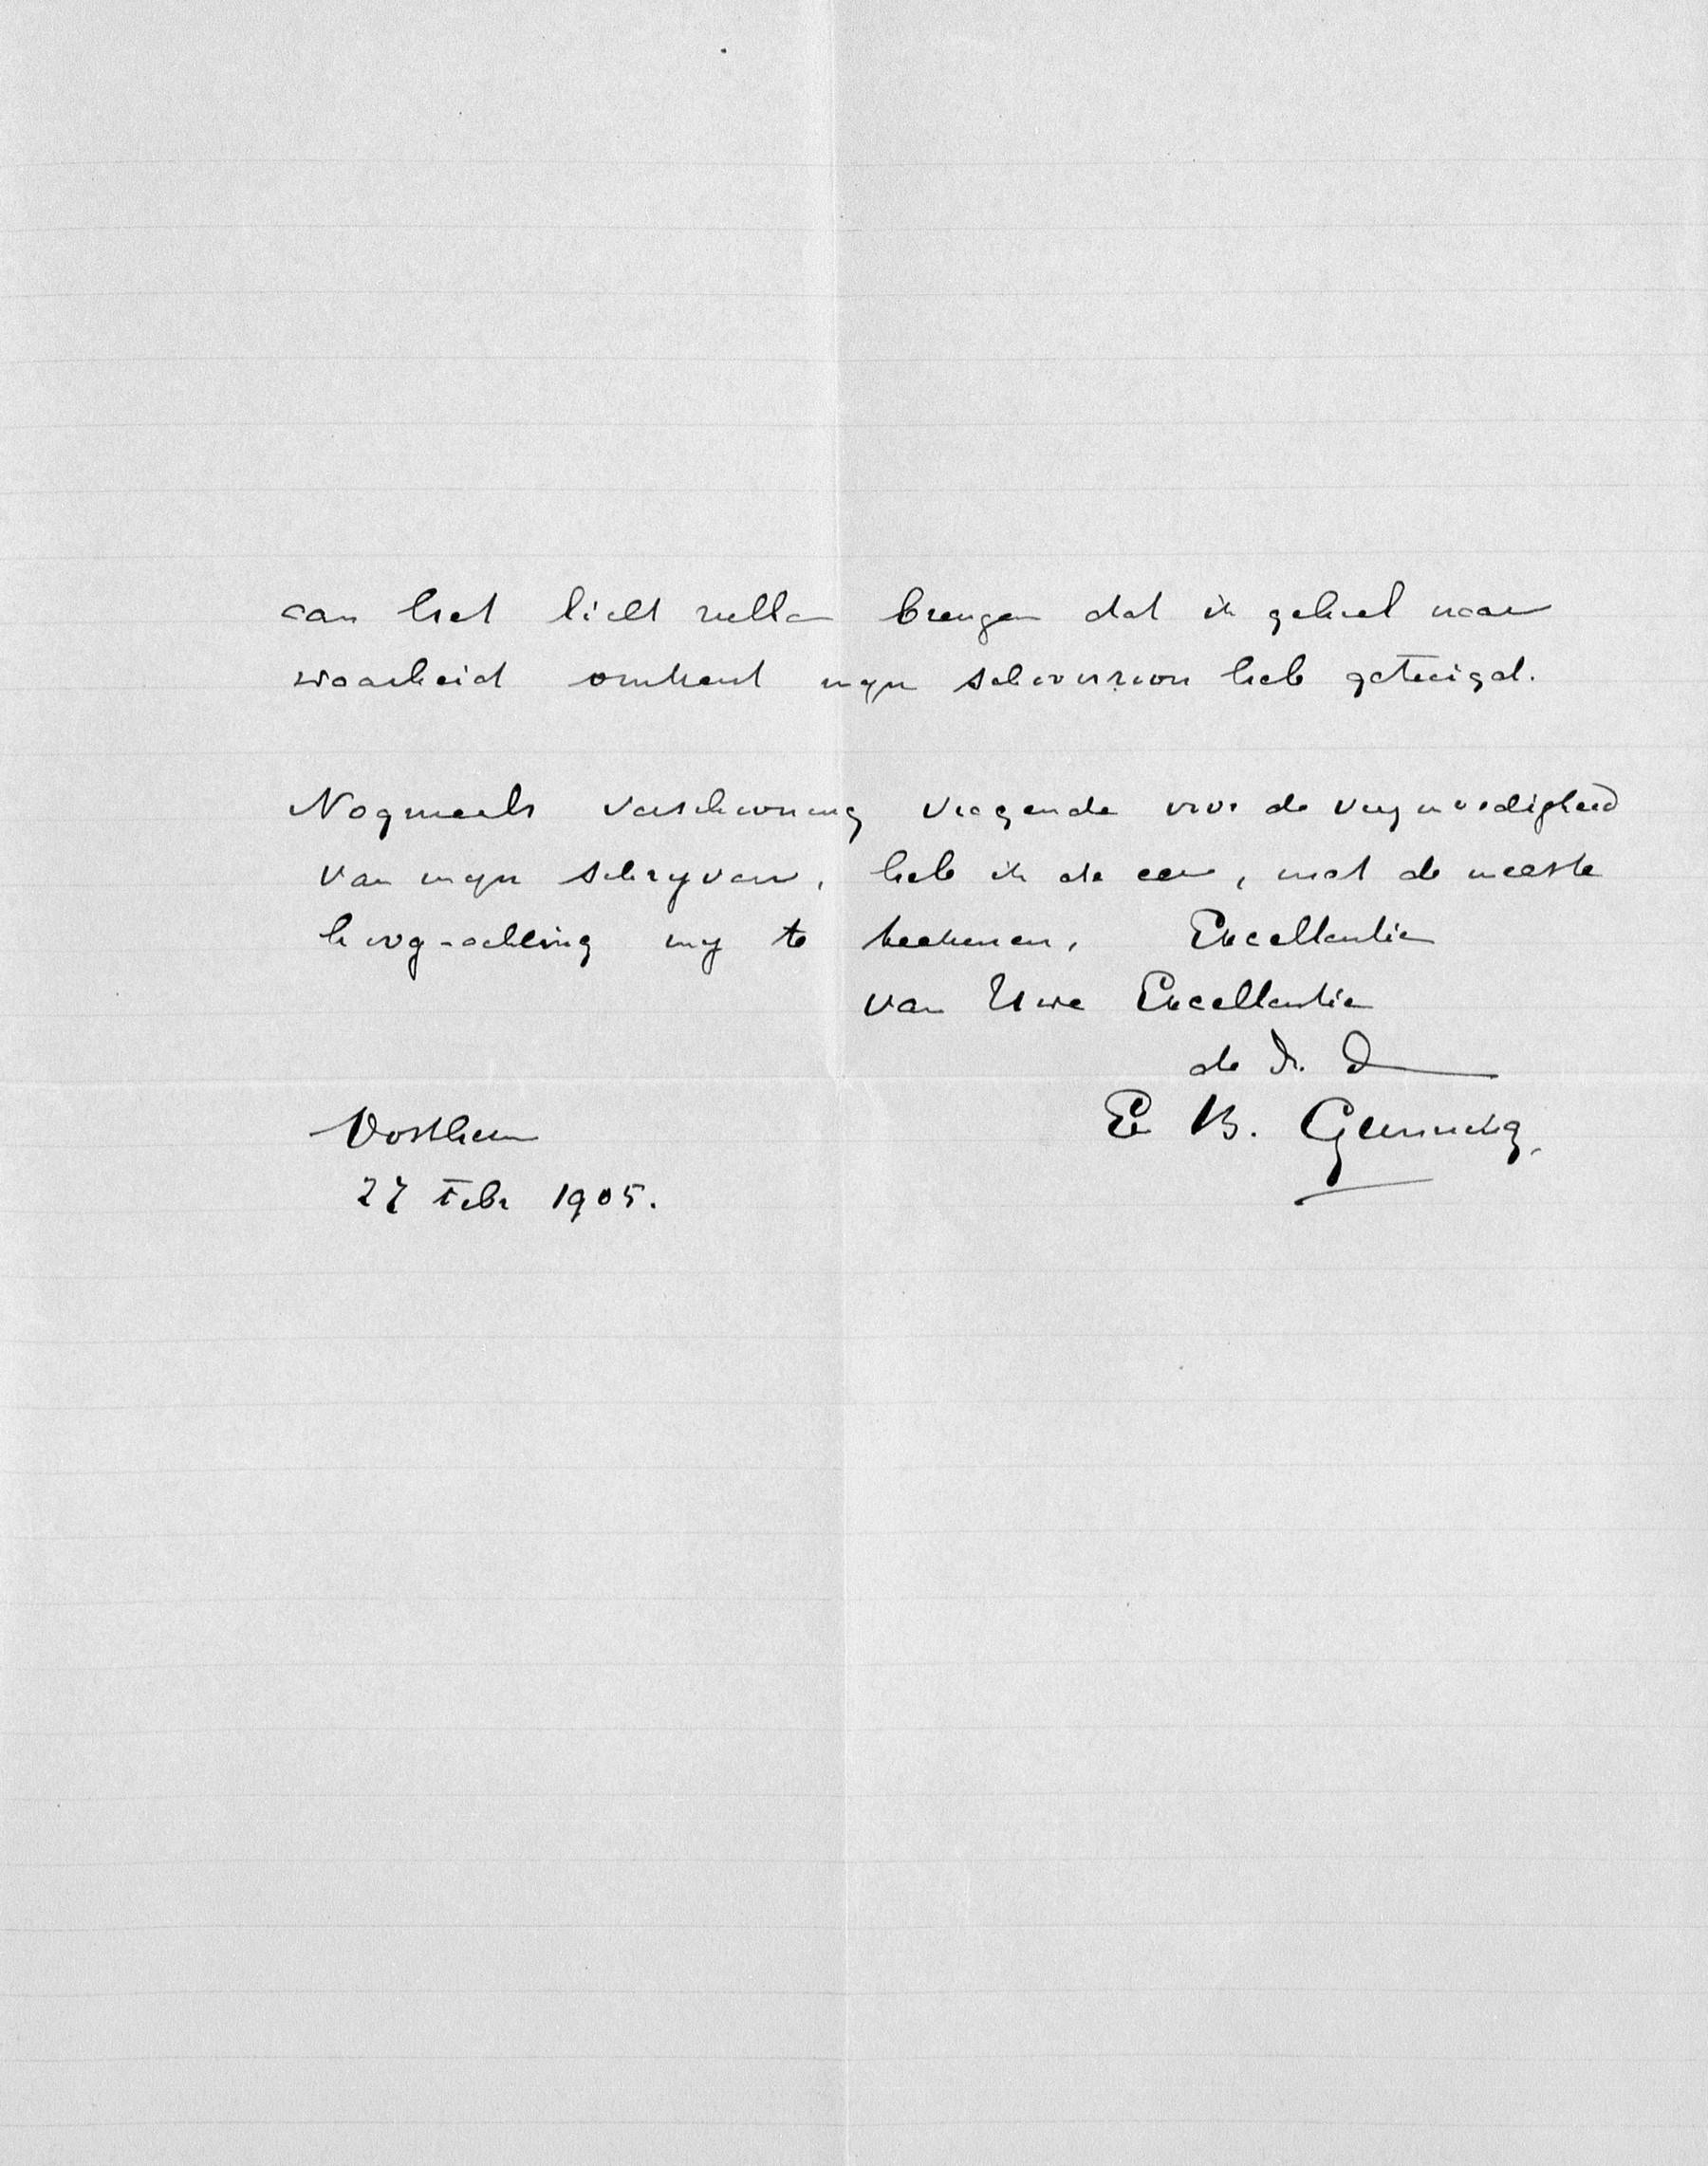 aan het licht zullen brengen dat ik geheel naar
waarheid omtrent mijn schoonzoon heb getuigd.
Nogmaals verschooning vragende voor de vrijmoedigheid
van mijn schrijven, heb ik de eer, met de meeste
hoog-achting mij te teekenen, Excellentie
van Uwe Excellentie
de Dr. D
E B. Gunning.
Oosthem
27 Febr 1905.